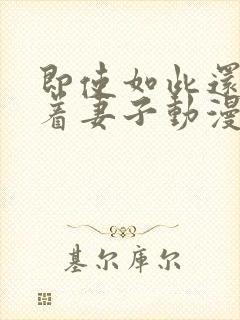 即使如此還
着妻子動漫
基尔库尔